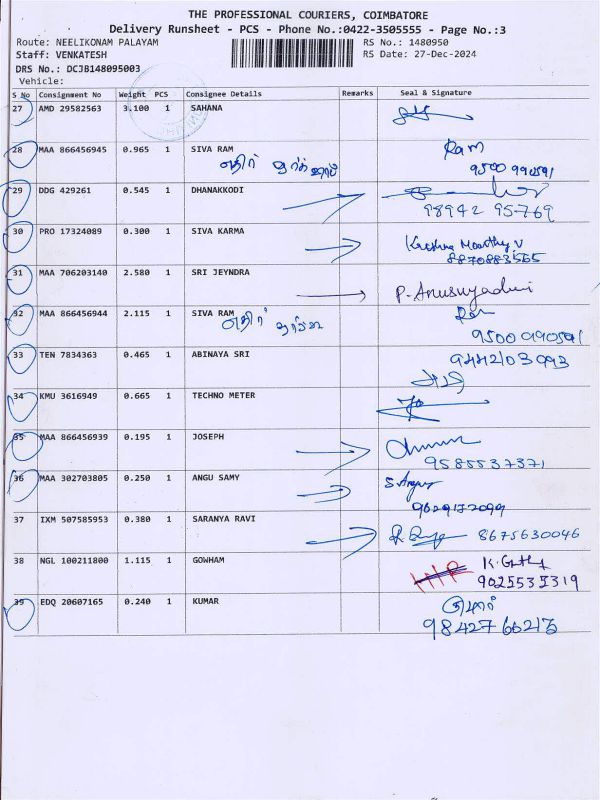 THE PROFESSIONAL COURIERS, COIMBATORE
Delivery Runsheet - PCS - Phone No.:0422-3505555 - Page No.:3
Route: NEELIKONAM PALAYAM RS No.: 1480950
Staff: VENKATESH RS Date: 27-Dec-2024
DRS No.: DCJB148095003
Vehicle:
S No Consignment No Weight PCS Consignee Details Remarks Seal & Signature
27 AMD 29582563 3.100 1 SAHANA
28 MAA 866456945 0.965 1 SIVA RAM Ram
எதிர் 9500990591
29 DDG 429261 0.545 1 DHANAKKODI
98942 95769
30 PRO 17324089 0.300 1 SIVA KARMA Krishna Moorthy V
8870883565
31 MAA 706203140 2.580 1 SRI JEYNDRA
P. Anusuyadevi
32 MAA 866456944 2.115 1 SIVA RAM Ram
எதிர் 9500990591
33 TEN 7834363 0.465 1 ABINAYA SRI 9442103993
34 KMU 3616949 0.665 1 TECHNO METER
35 MAA 866456939 0.195 1 JOSEPH
9585537371
36 MAA 302703805 0.250 1 ANGU SAMY
37 IXM 507585953 0.380 1 SARANYA RAVI 8675630046
38 NGL 100211800 1.115 1 GOWHAM
9025535319
39 EDQ 20607165 0.240 1 KUMAR குமார்